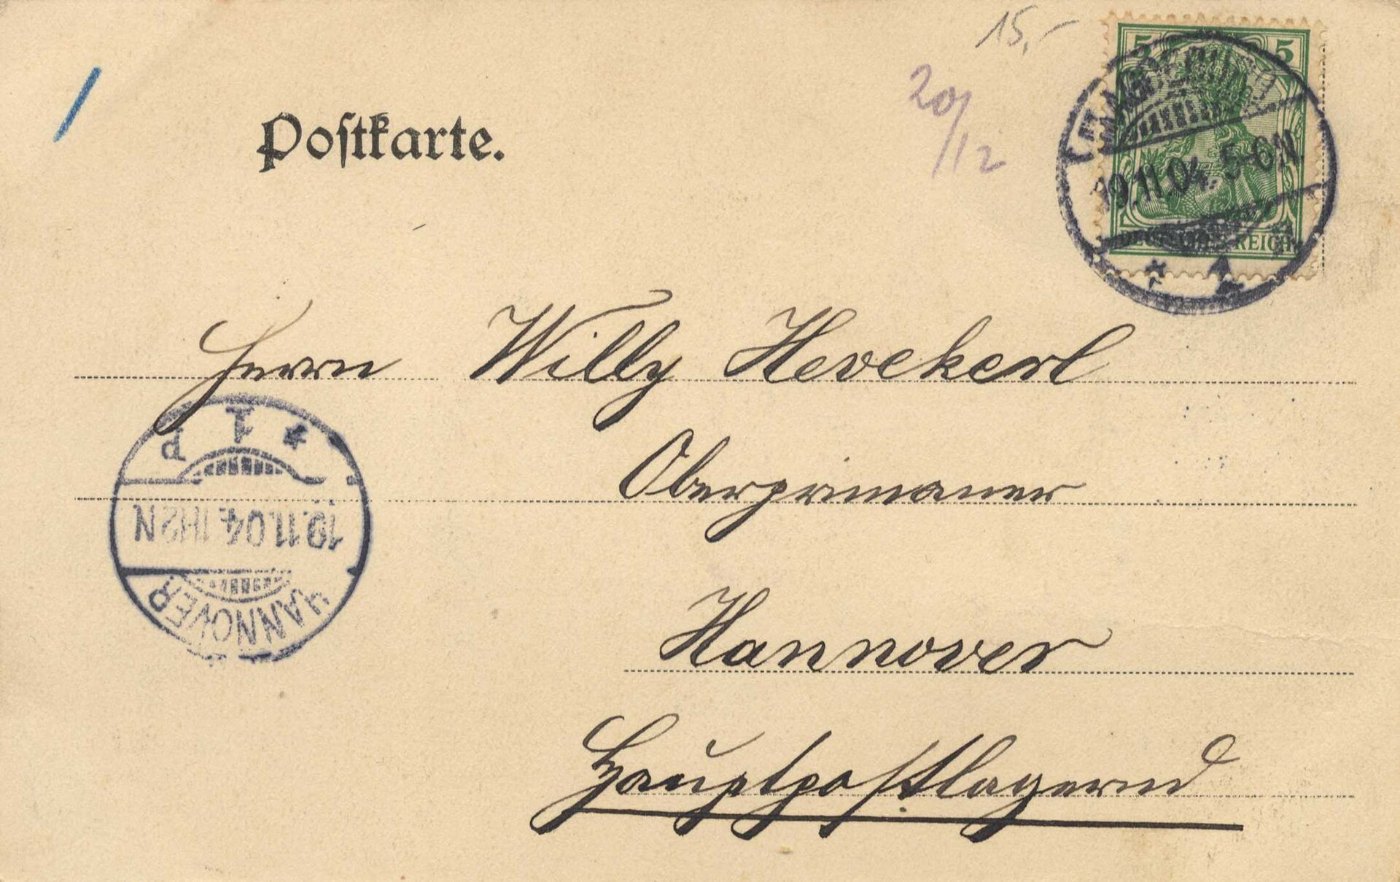 15,-
20/12
Poſtkarte.
5 5
MAGDEBURG
19.11.04. 5-6N
DEUTSCHES REICH
* 1
Herrn Willy Hevekerl
Oberprimaner
Hannover
Hauptpostlagernd
HANNOVER
19.11.04. 11-12N
* 1 P